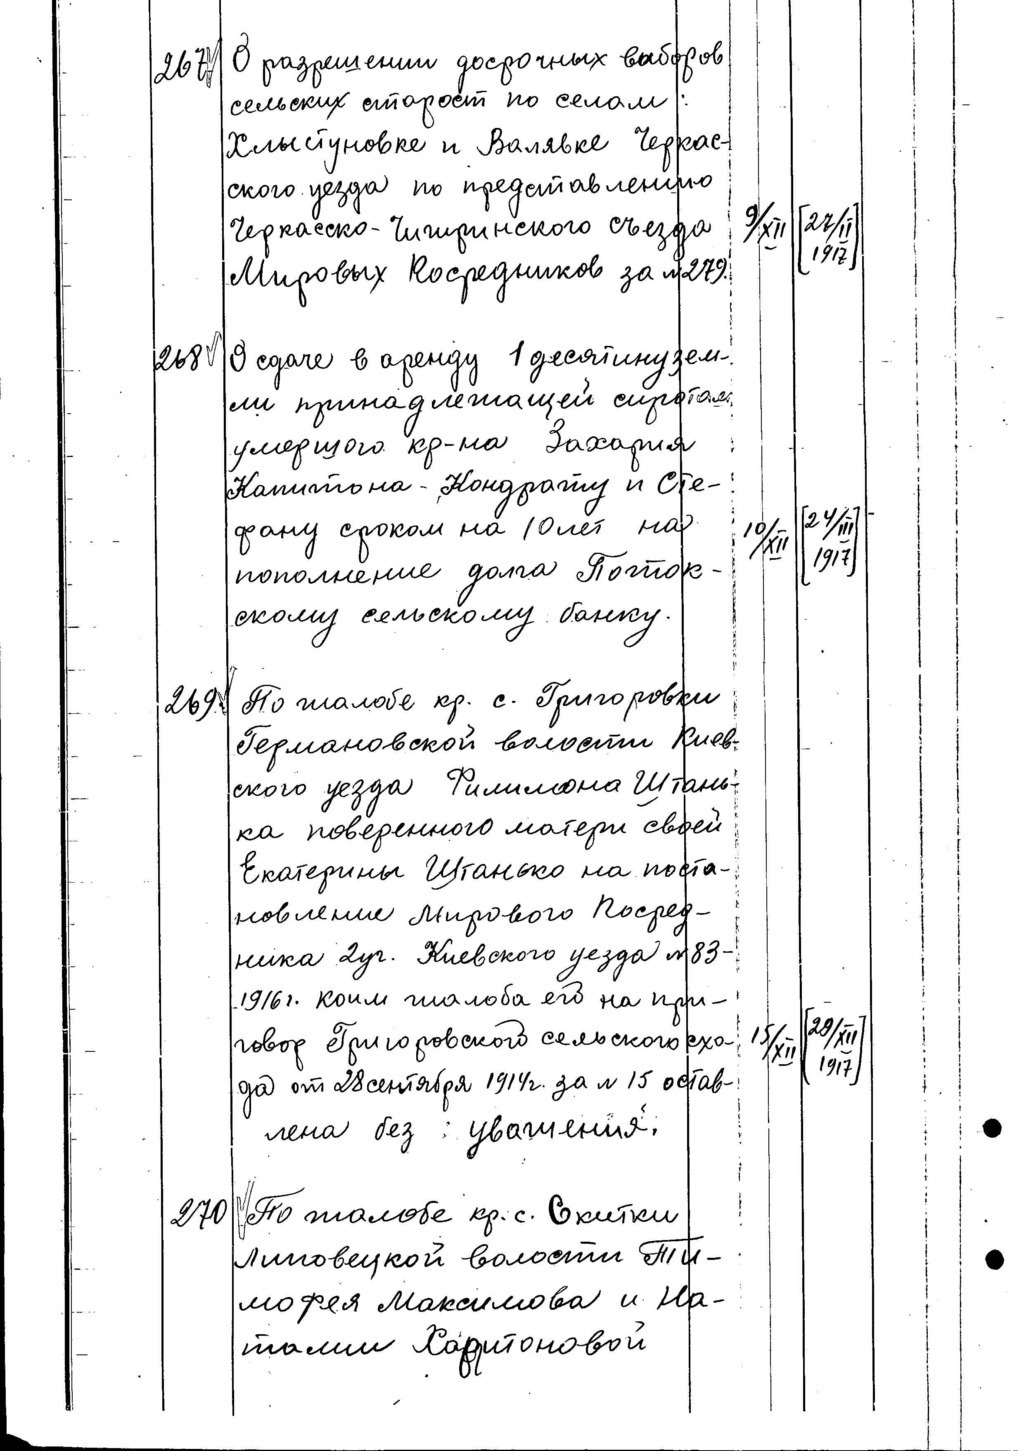 267 О разрешении досрочных выборов
сельских старост по селам:
Хлыстуновке и Валявке Черкас-
ского уезда по представлению
Черкасско-Чигиринского съезда
Мировых Посредников за №279.
9/XII [27/II 1917]
268 О сдаче в аренду 1 десятину зем-
ли принадлежащей сиротам
умершого кр-на Захария
Капитона - Кондрату и Сте-
фану сроком на 10 лет на
пополнение долга Поток-
скому сельскому банку.
10/XII [24/III 1917]
269. По жалобе кр. с. Григоровки
Германовской волости Киев-
ского уезда Филимона Штань-
ка поверенного матери своей
Екатерины Штанько на поста-
новление Мирового Посред-
ника 2 уч. Киевского уезда №83-
1916г. коим жалоба его на при-
говор Григоровского сельского схо-
да от 28 сентября 1914г. за № 15 остав-
лена без уважения.
15/XII [29/XII 1917]
270 По жалобе кр. с. Скитки
Липовецкой волости Ти-
мофея Максимова и На-
талии Харитоновой